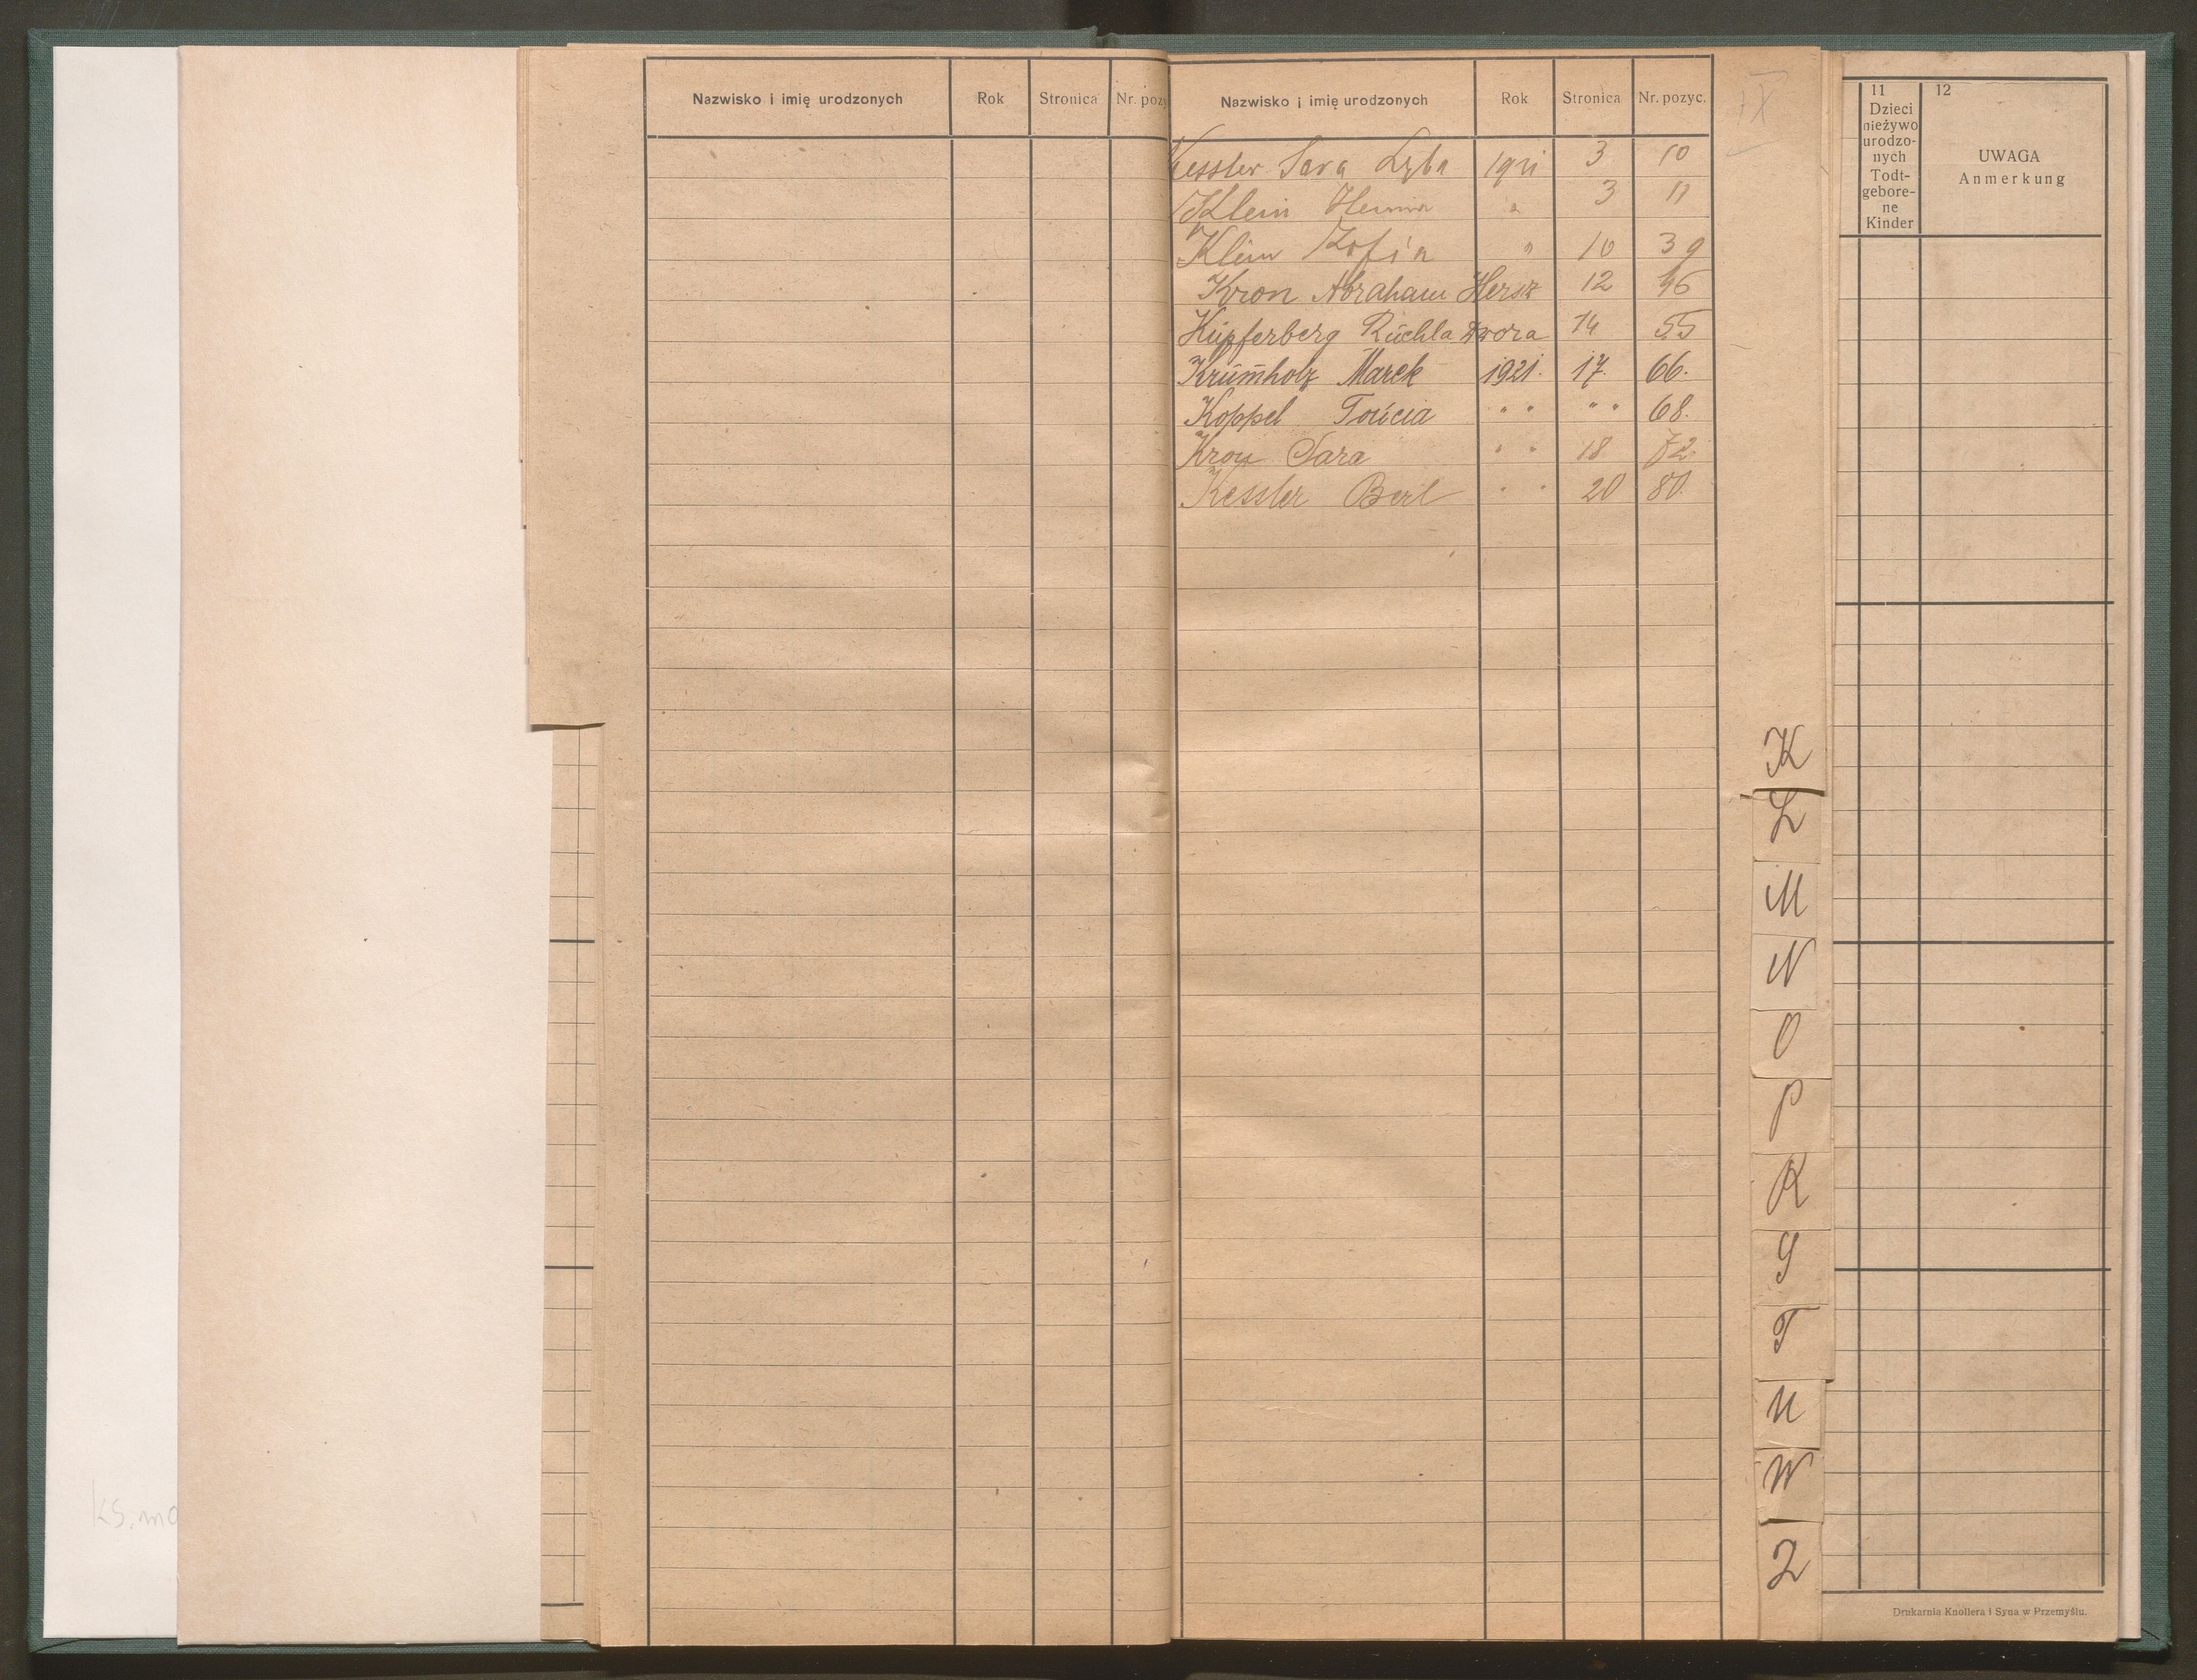 Nazwisko i imię urodzonych Rok Stronica Nr. pozy
Nazwisko i imię urodzonych Rok Stronica Nr. pozyc.
IX
Kessler Sara 1921 3 10
Klein 3 11
Klein Zofia " 10 39
Kron Abraham Hersz 12 46
Kupferberg Ruchla Dwora 14 55
Krumholz Marek 1921. 17. 66.
Koppel " " " " 68.
Kron Sara " " 18 72.
Kessler Berl " " 20 80.
K
L
M
N
O
P
R
S
T
U
W
Z
11
Dzieci
nieżywo
urodzo-
nych
Todt-
gebore-
ne
Kinder
12
UWAGA
Anmerkung
Drukarnia Knollera i Syna w Przemyślu.
ks. mo